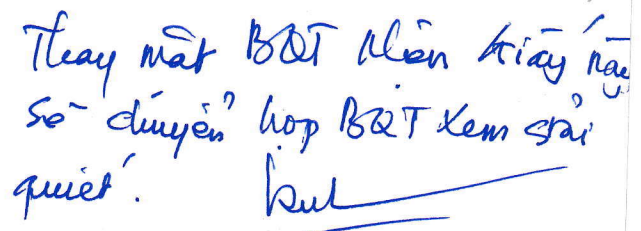 Thay mặt BQT Nhận giấy này
Sẽ chuyển họp BQT xem giải
quiết.